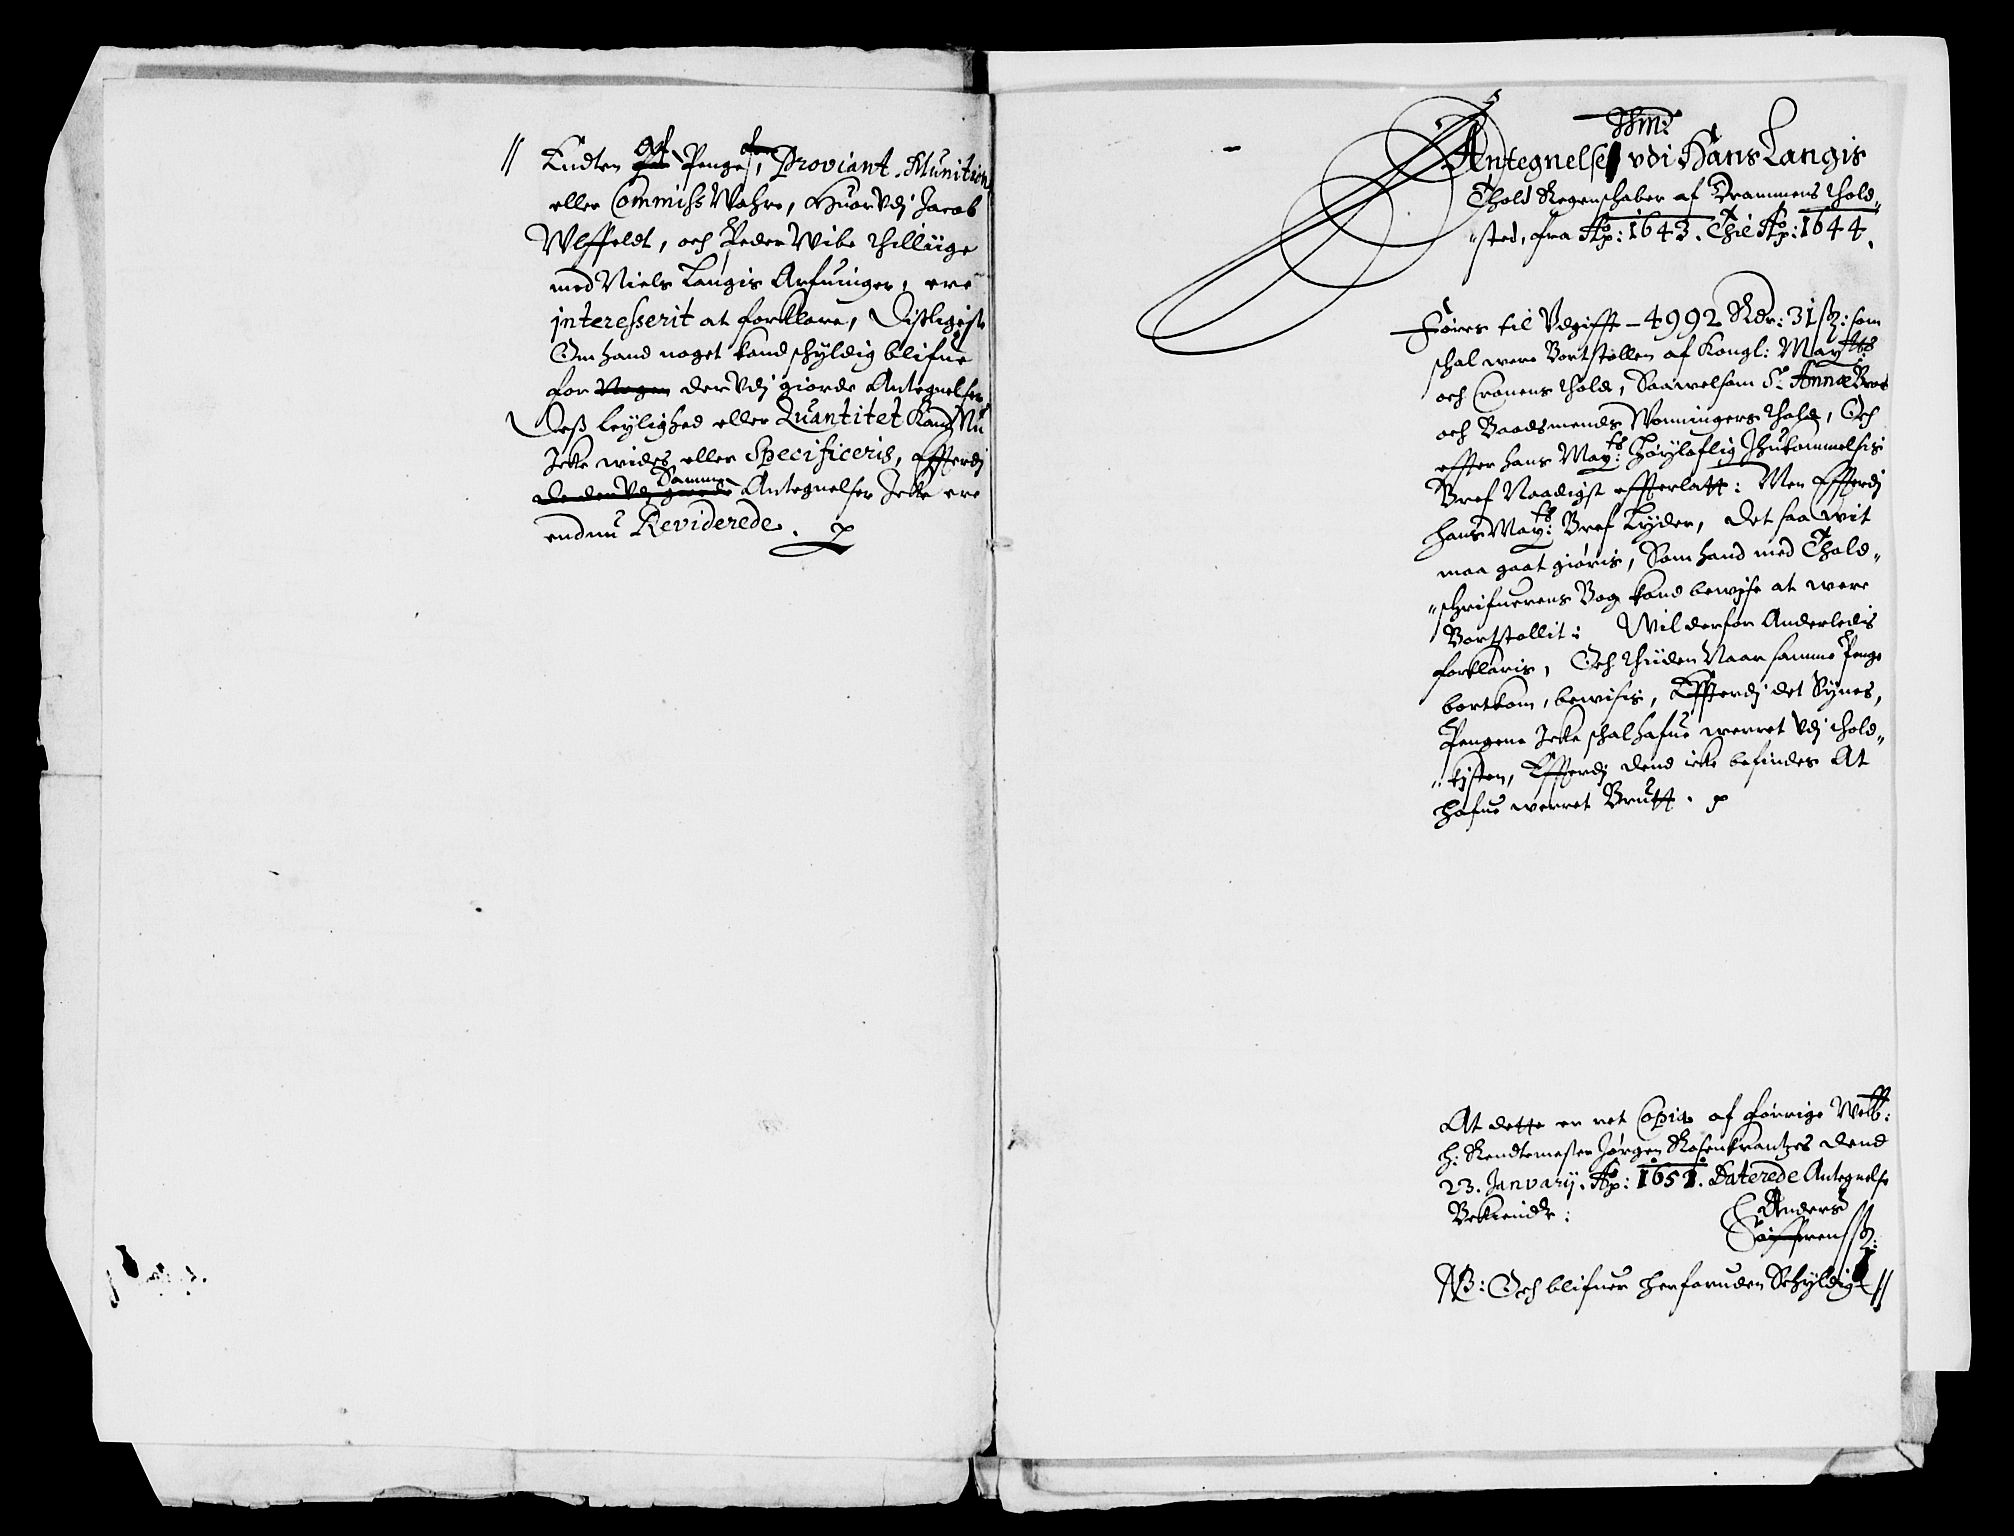 // Endten Af Penge, Proviant, Munition
eller Commiss Wahre, Huor Vdj Jacob
Wlffeldt, och Peder Wibe thilliige
med Niels Langis Arfuinger, ere
jnteresserit at forklare, Disligeste
Om hand noget kand schyldig blifue
for Nogen der Vdj giorde Antegnelser,
Deß leylighed eller Quantitet Kand Nu
Icke wides eller Specificeris, Effterdj
de der Vdj giorde Samme Antegnelser Icke ere
endnu Reviderede.
Antegnelse vdi Hans Langis
Thold Regenschaber af Drammens thold„
„sted, fra Aº: 1643. Thil Aº: 1644.
Føres til Vdgifft – 4992 Rdr: 31 ß: som
schal were Bortstollen af Kongl: Mayttz
och Cronens thold, Saawelsom St Annæ Broe
och Baadsmends Wonningers thold, Och
effter hans Maytz: Høyloflig Ihukommelsis
Bref Naadigst effterlatt: Men Effterdj
hans Maytz: Bref Lyder, det saa wit
maa gaat giøris, Som hand med Thold„
„schrifuerens Bog kand bewise at were
Bortstollit: Wil derfor Anderledis
forklaris, Och thiiden Naar samme Penge
bortkom, bewisis, Effterdj det Synes,
Pengene Icke schal hafue werret Vdj thold„
„kisten, Effterdj dend icke befindes At
hafue werret Brutt.
At dette er ret Copia af forrige Welb:
H: Rendtemester Jørgen Rosenkrantzes dend
23. Janvarij. Aº: 1651. Daterede Antegnelse
Bekiender:
Anders
Søffrenßß:
NB: Och blifuer herforuden Schyldig //